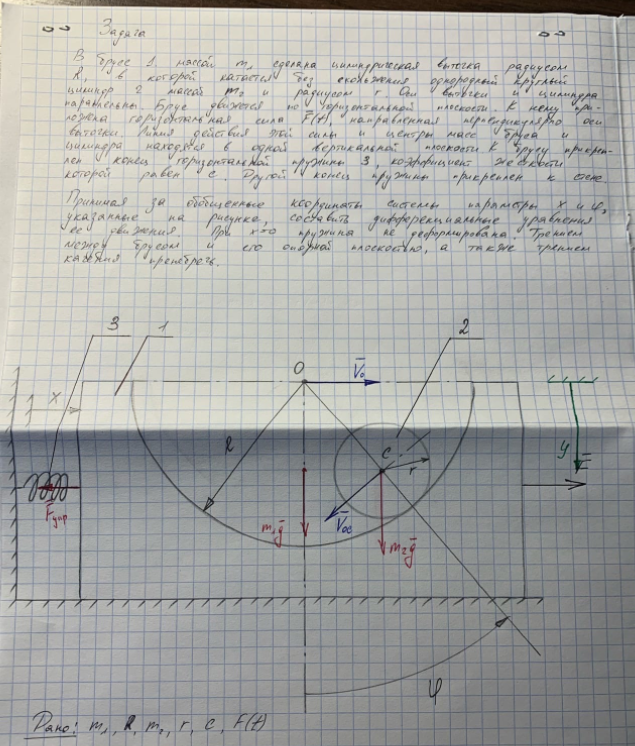 Задача
В брусе 1 массой m₁ сделана цилиндрическая выточка радиусом
R, в которой катается без скольжения однородный круглый
цилиндр 2 массой m₂ и радиусом r. Оси выточки и цилиндра
параллельны. Брус движется по горизонтальной плоскости. К нему при-
ложена горизонтальная сила F(t), направленная перпендикулярно оси
выточки. Линия действия этой силы и центры масс бруса и
цилиндра находятся в одной вертикальной плоскости. К брусу прикреп-
лен конец горизонтальной пружины 3, коэффициент жесткости
которой равен c. Другой конец пружины прикреплен к стене.
Принимая за обобщенные координаты системы параметры x и φ,
указанные на рисунке, составить дифференциальные уравнения
ее движения. При x=0 пружина не деформирована. Трением
между брусом и его опорной плоскостью, а также трением
качения пренебречь.
3 1 2
O V̅₀
x
R C r y F̅
F̅упр
m₁g̅ V̅ос m₂g̅
φ
Дано: m₁, R, m₂, r, c, F(t)